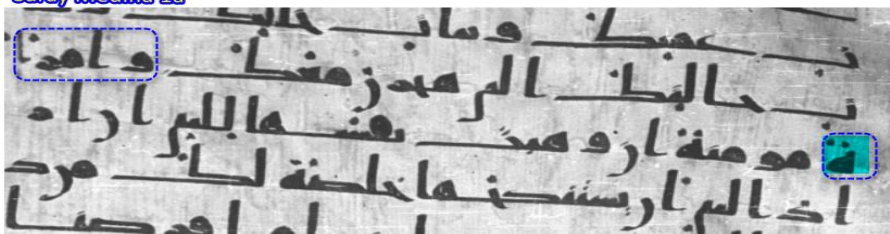 ت عمتك وبنات خالك
ت خالتك التي هجرن معك وامرا
ة مومنة ان وهبت نفسها للنبي ان اراد
النبي ان يستنكحها خالصة لك من د